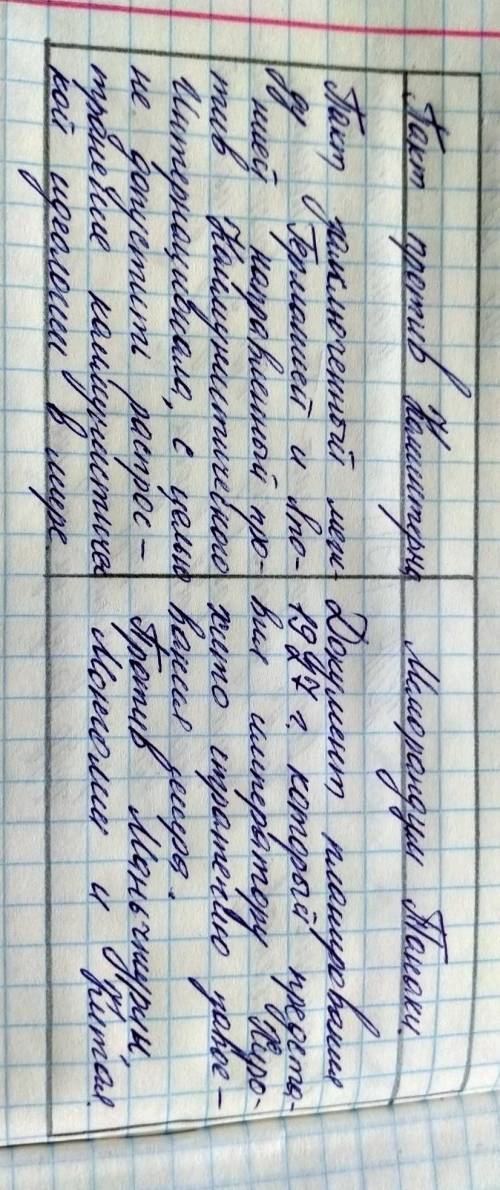 Пакт против Коминтерна
Пакт, заключенный меж-
ду Германией и Япо-
нией направленный про-
тив Коммунистичекого
Интернационала, с целью
не допустить распрос-
транение коммунистичес
кой идеологии в мире
Меморандум Танаки.
Документ планирования
1927 г. который предста-
вил императору Хиро-
хито стратегию завое-
вания мира.
Против Маньчжурии,
Монголии и Китая.